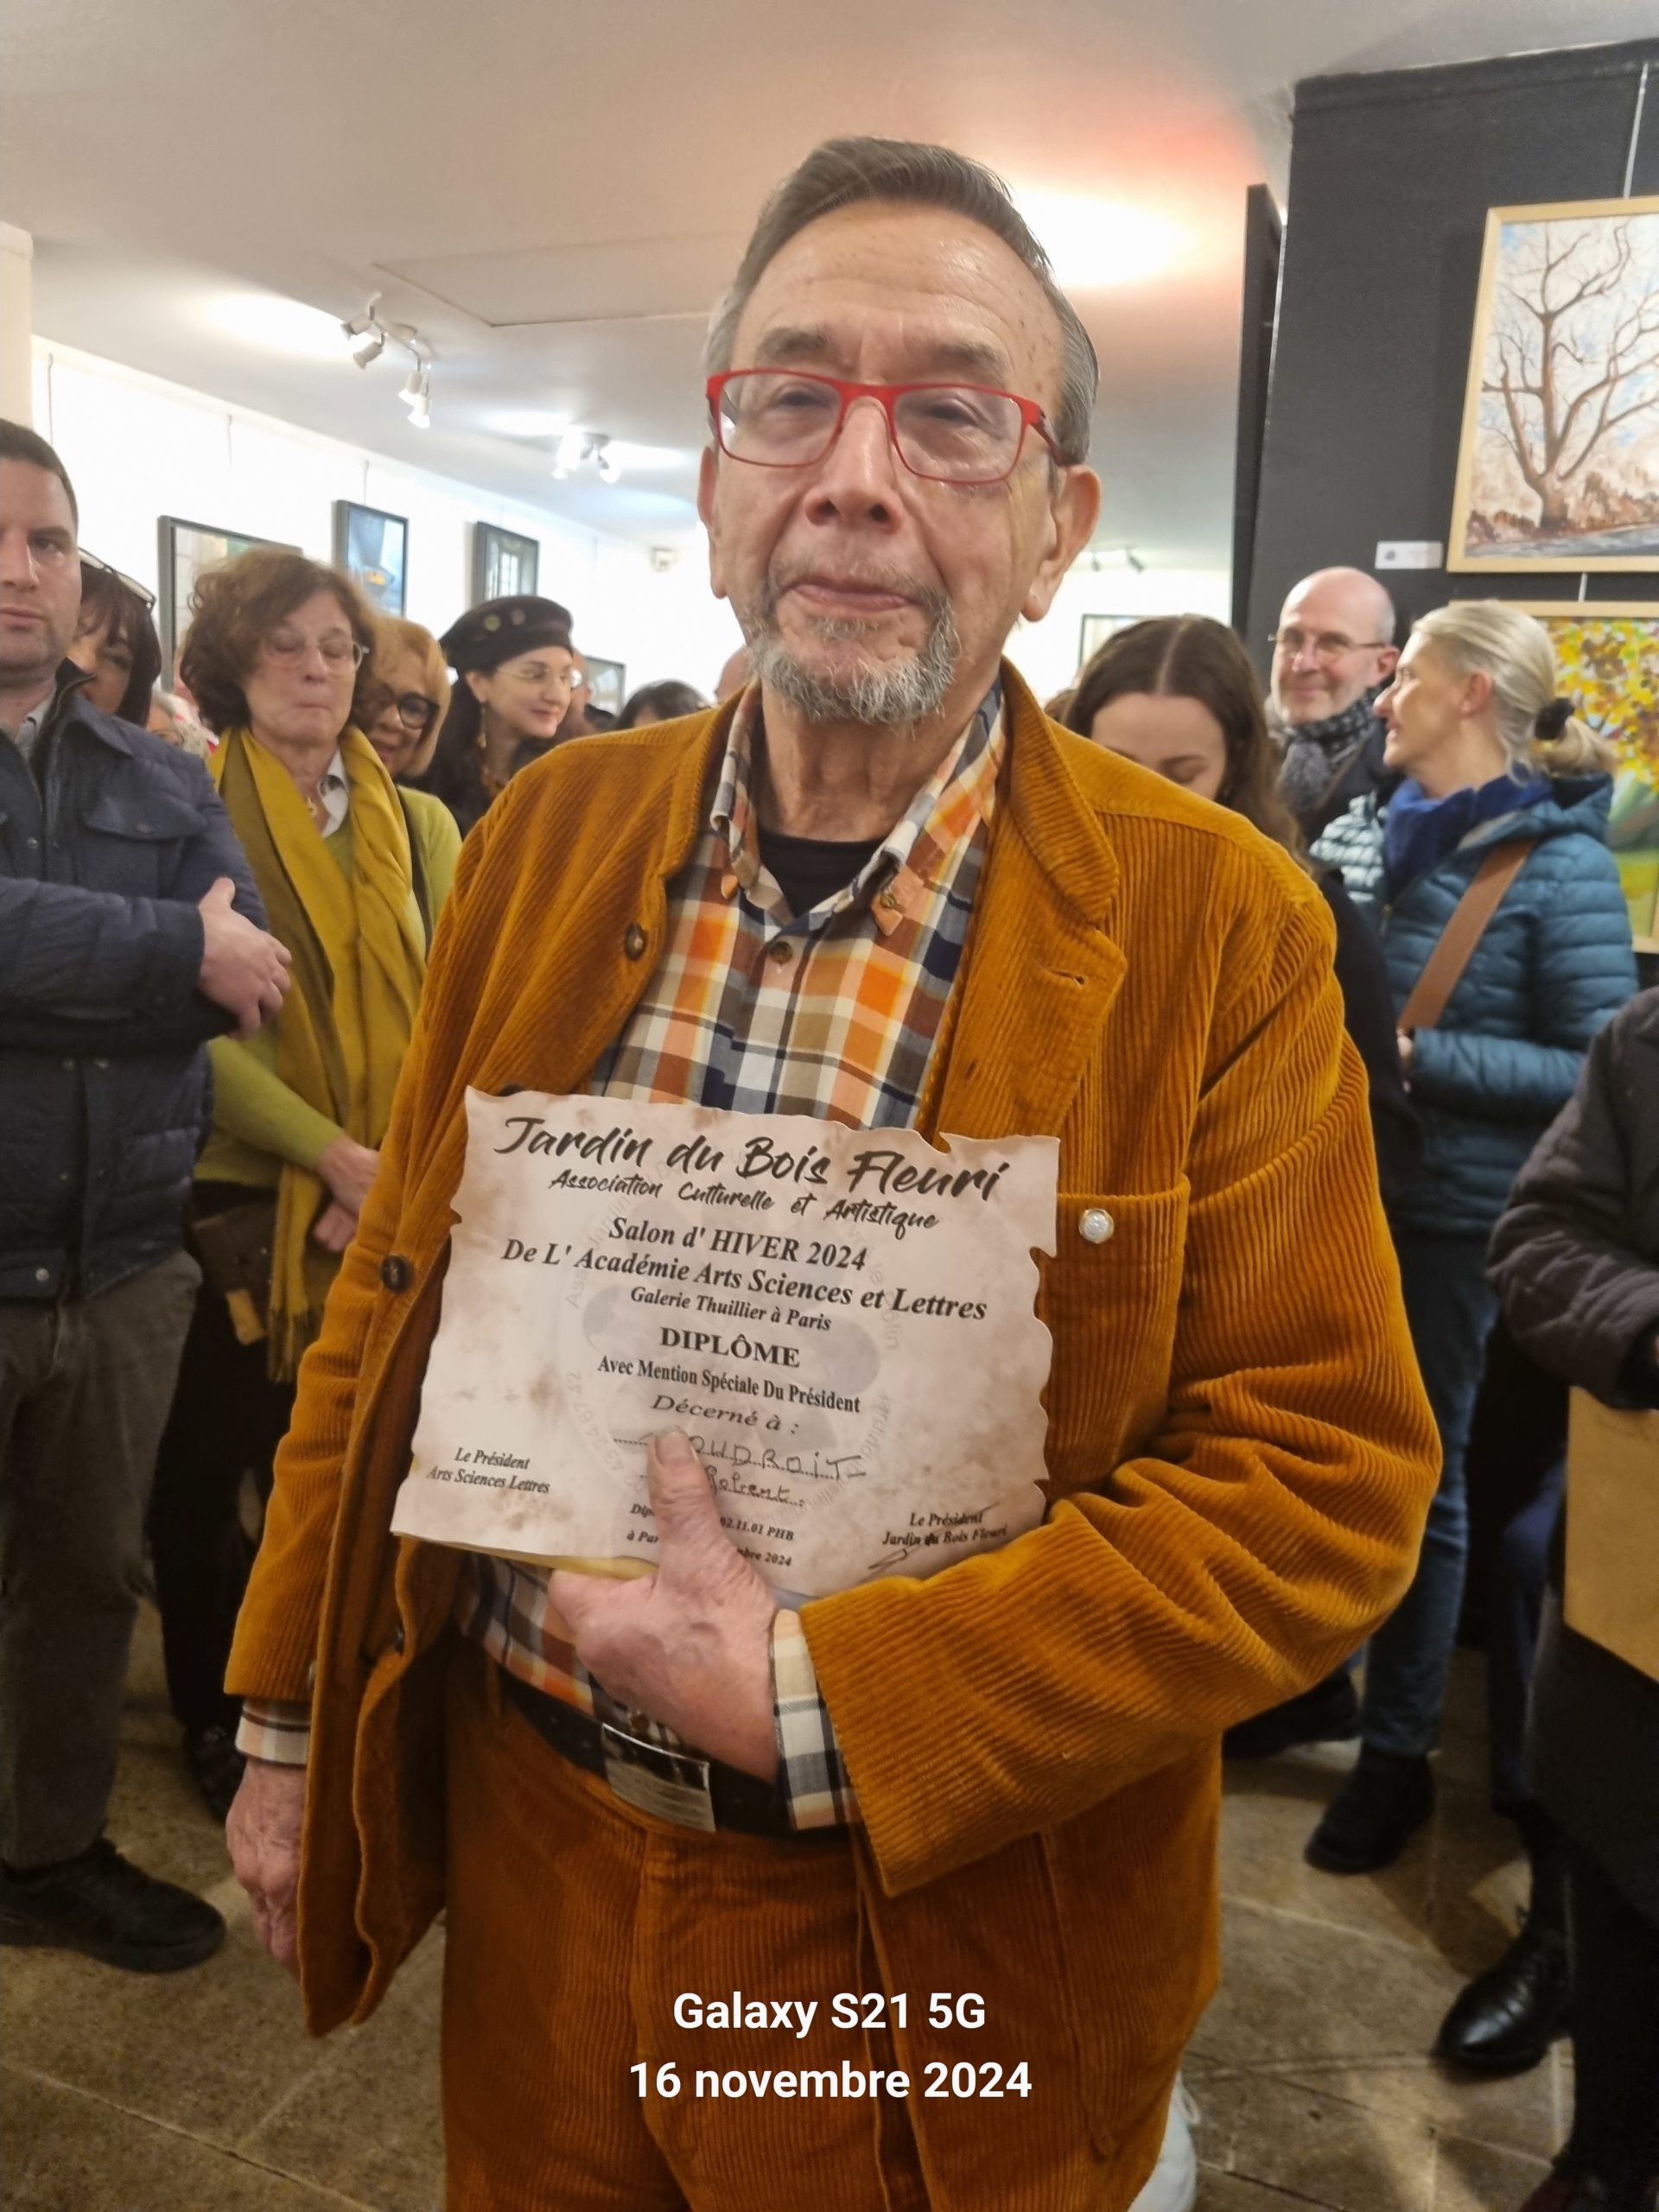 Jardin du Bois Fleuri
Association Culturelle et Artistique
Salon d' HIVER 2024
De L' Académie Arts Sciences et Lettres
Galerie Thuillier à Paris
DIPLÔME
Avec Mention Spéciale Du Président
Décerné à :
Le Président
Arts Sciences Lettres
02.11.01 PHB
2024
Le Président
Jardin du Bois Fleuri
Galaxy S21 5G
16 novembre 2024